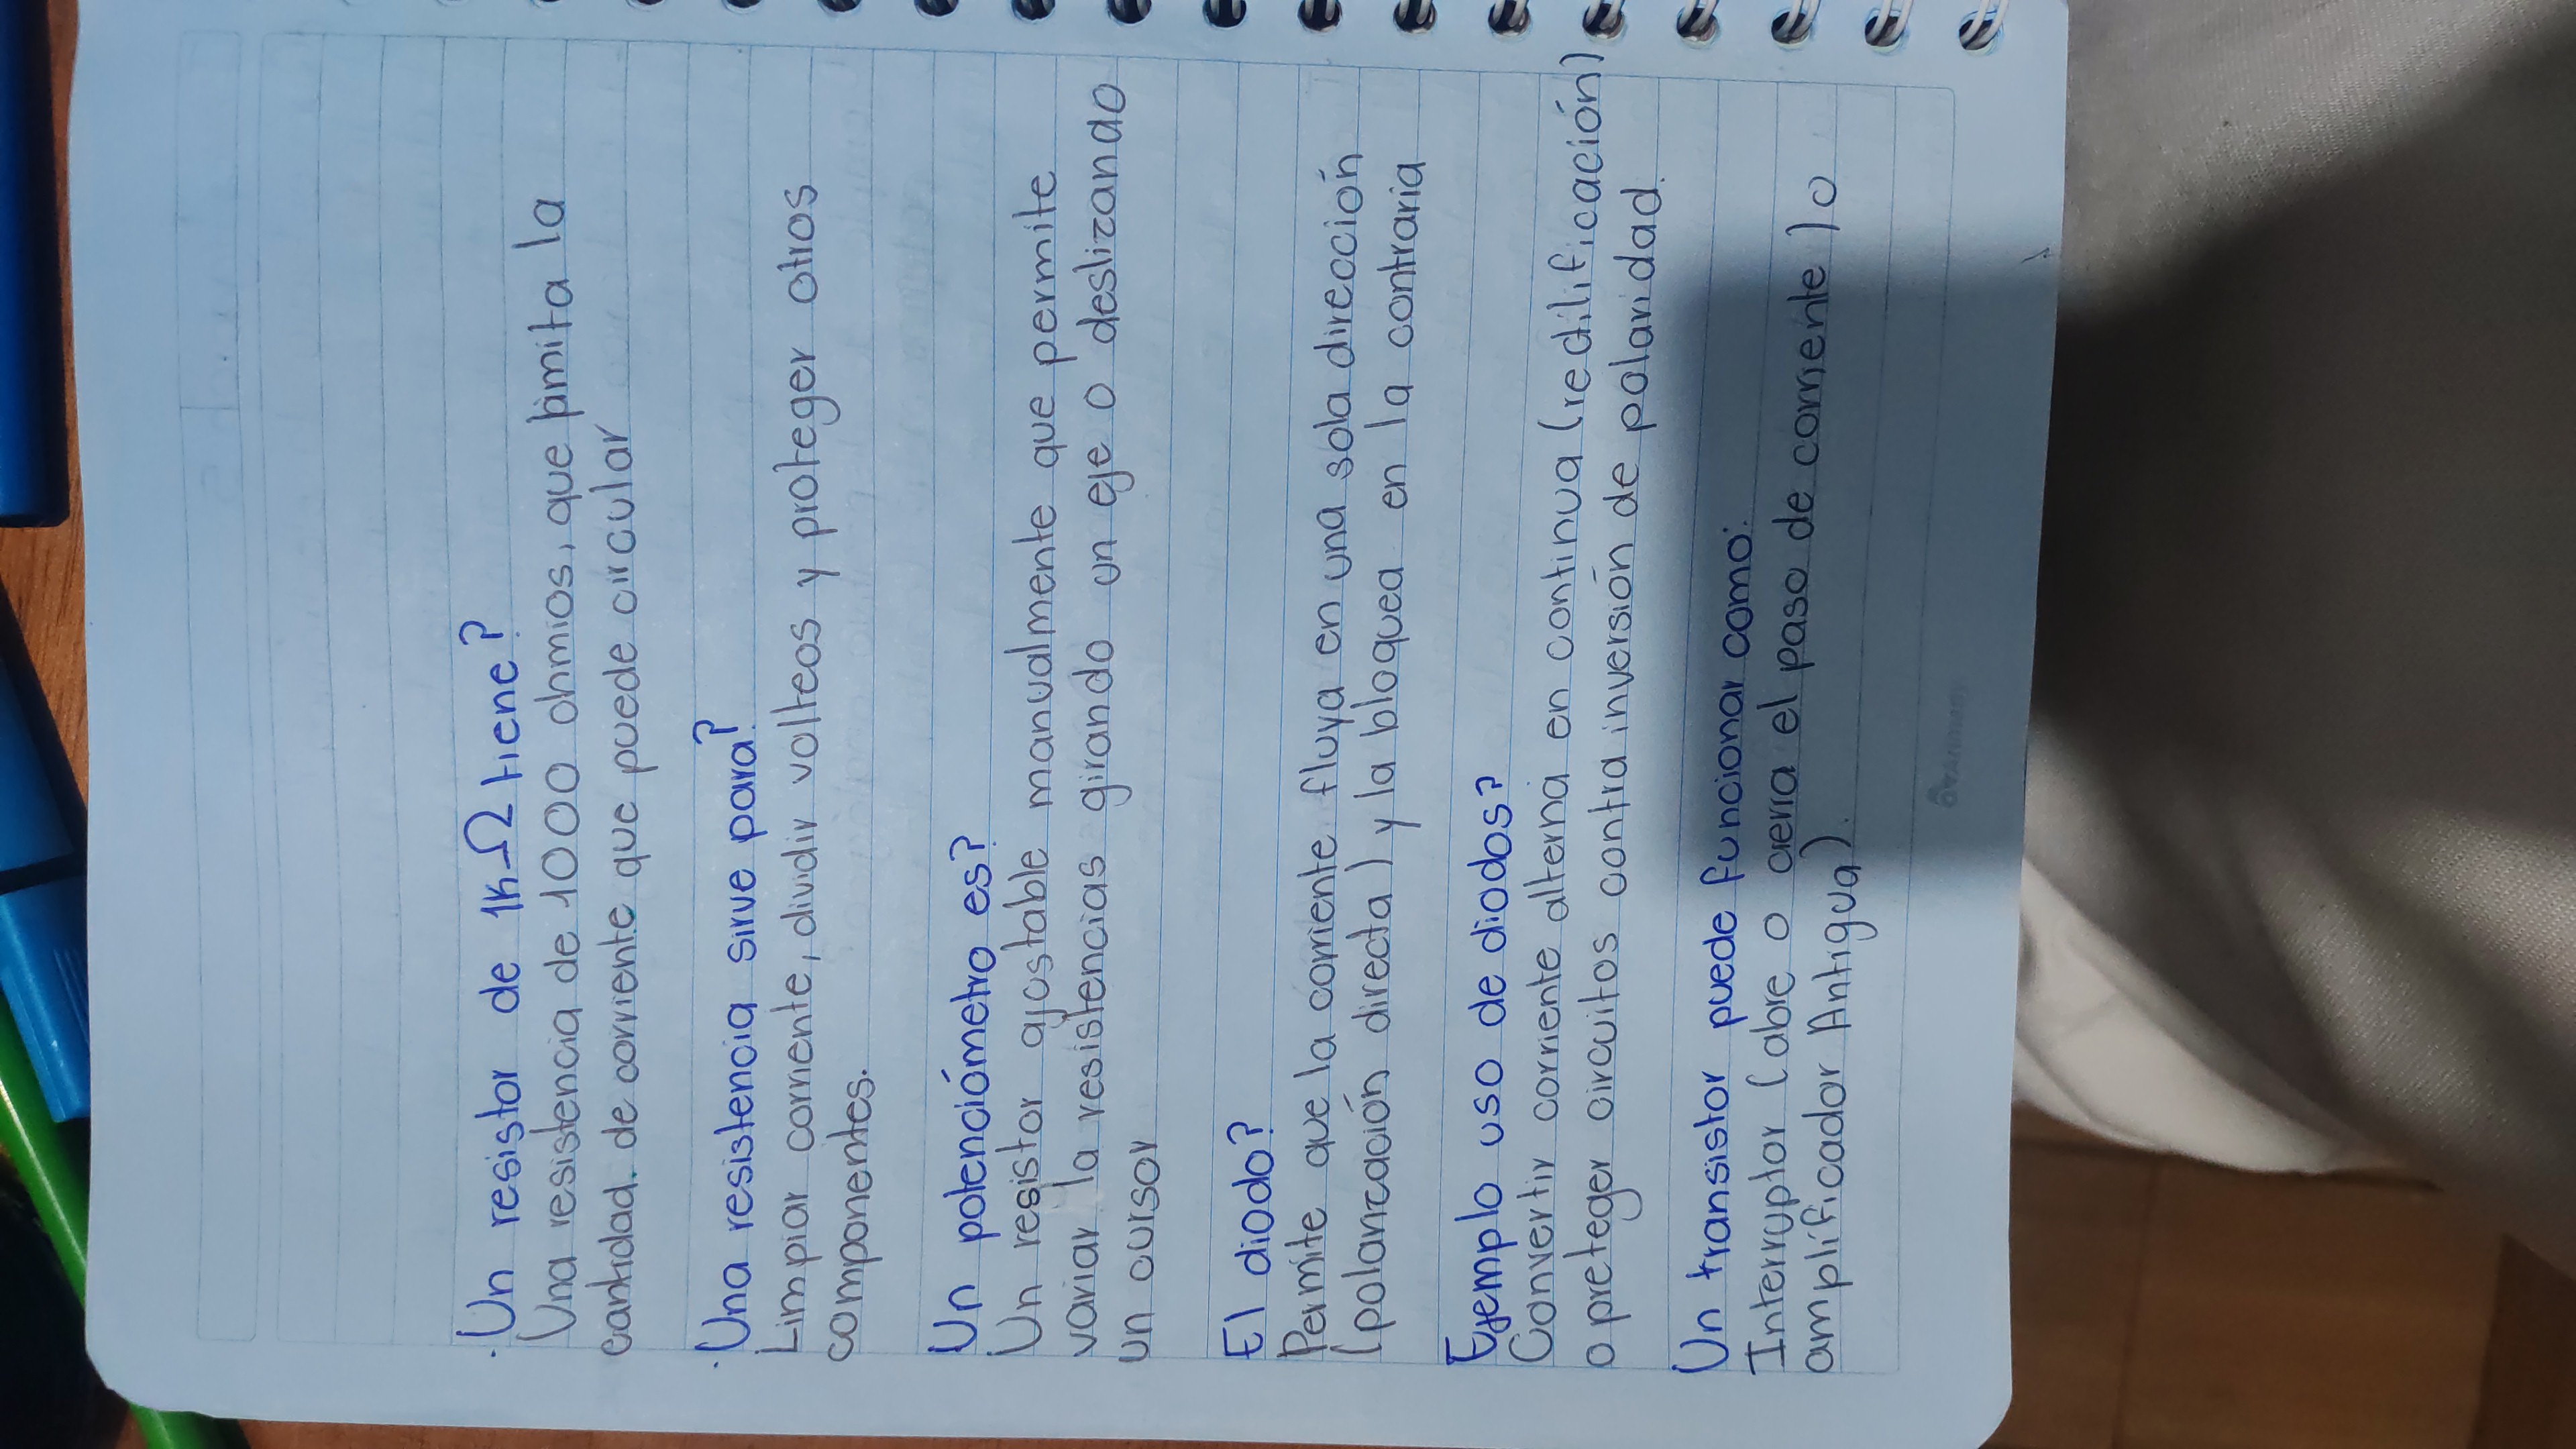 . Un resistor de 1kΩ tiene?
Una resistencia de 1000 ohmios, que limita la
cantidad. de corriente que puede circular
. Una resistencia sirve para?
Limpiar corriente, dividir volteos y proteger otros
componentes.
Un potenciómetro es?
Un resistor ajustable manualmente que permite
variar la resistencias girando un eje o deslizando
un cursor
El diodo?
Permite que la corriente fluya en una sola dirección
(polarización directa) y la bloquea en la contraria
Ejemplo uso de diodos?
Convertir corriente alterna en continua (redilificación)
o preteger circuitos contra inversión de polaridad.
Un transistor puede funcionar como:
Interruptor (abre o cierra el paso de corriente) o
amplificador Antigua).